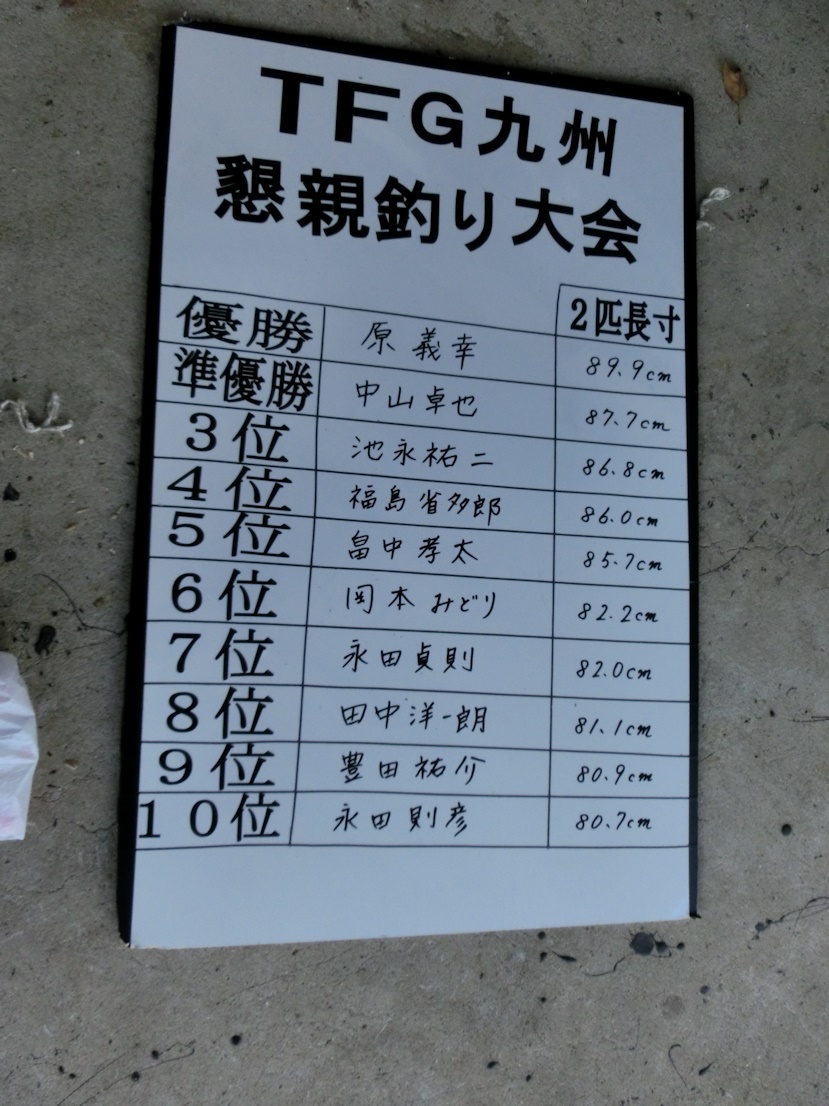 TFG九州
懇親釣り大会
2匹長寸
優勝 原 義幸 89.9cm
準優勝 中山卓也 87.7cm
3位 池永祐二 86.8cm
4位 福島省多郎 86.0cm
5位 畠中孝太 85.7cm
6位 岡本みどり 82.2cm
7位 永田貞則 82.0cm
8位 田中洋一朗 81.1cm
9位 豊田祐介 80.9cm
10位 永田則彦 80.7cm